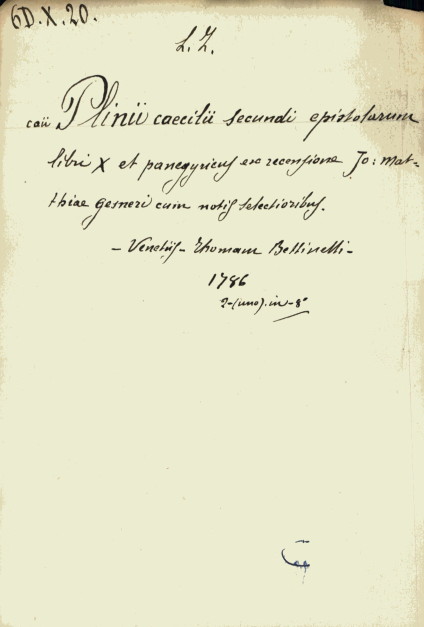 6D.X.20.
L.Z.
caii Plinii caecilii secundi epistolarum
libri X et panegyricus exc recensione Jo: mat=
thiae gesneri cum notis selectioribus.
- Venetiis - Thomam Bettinelli -
1786
2-(uno).in-8°